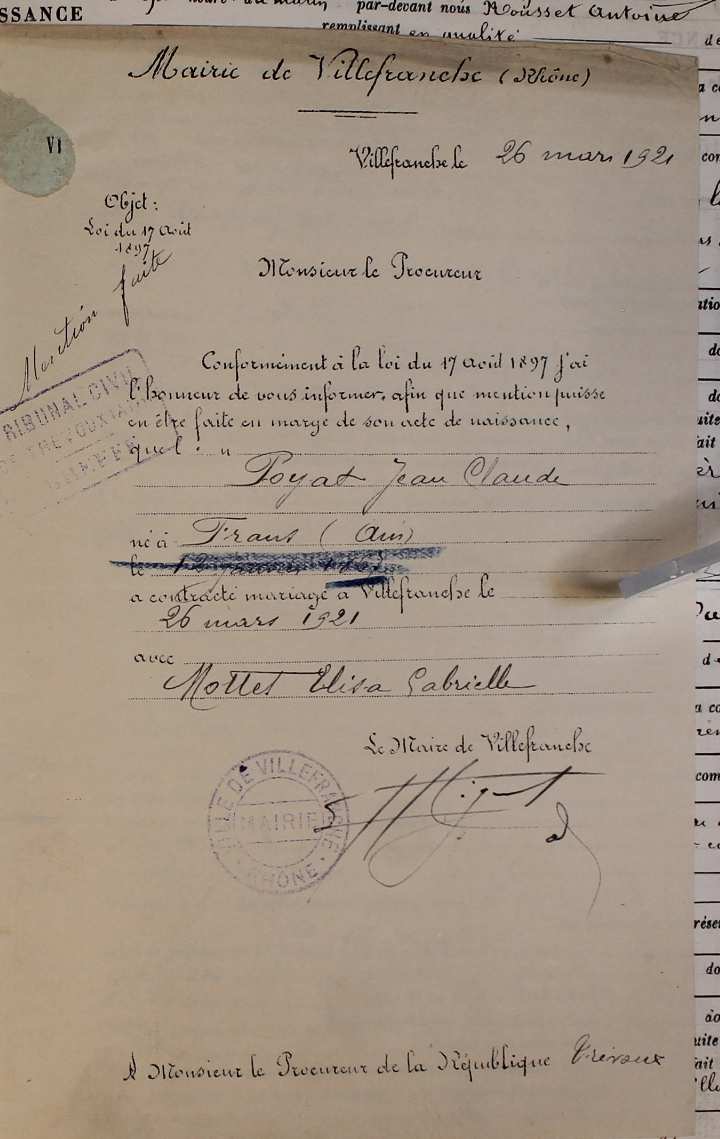 SSANCE
par-devant nous Rousset Antoine
remplissant en qualité
Mairie de Villefranche (Rhône)
VI
Villefranche le 26 mars 1921
Objet :
Loi du 17 Août
1897
Mention faite
Monsieur le Procureur
TRIBUNAL CIVIL
GREFFE
Conformément à la loi du 17 Août 1897 j'ai
l'honneur de vous informer, afin que mention puisse
en être faite en marge de son acte de naissance,
que l . n
Poyat Jean Claude
né à Frans (Ain)
le
a contracté mariage à Villefranche le
26 mars 1921
avec
Mottet Elisa Gabrielle
Le Maire de Villefranche
VILLE DE VILLEFRANCHE
MAIRIE
RHÔNE
A Monsieur le Procureur de la République Trévoux